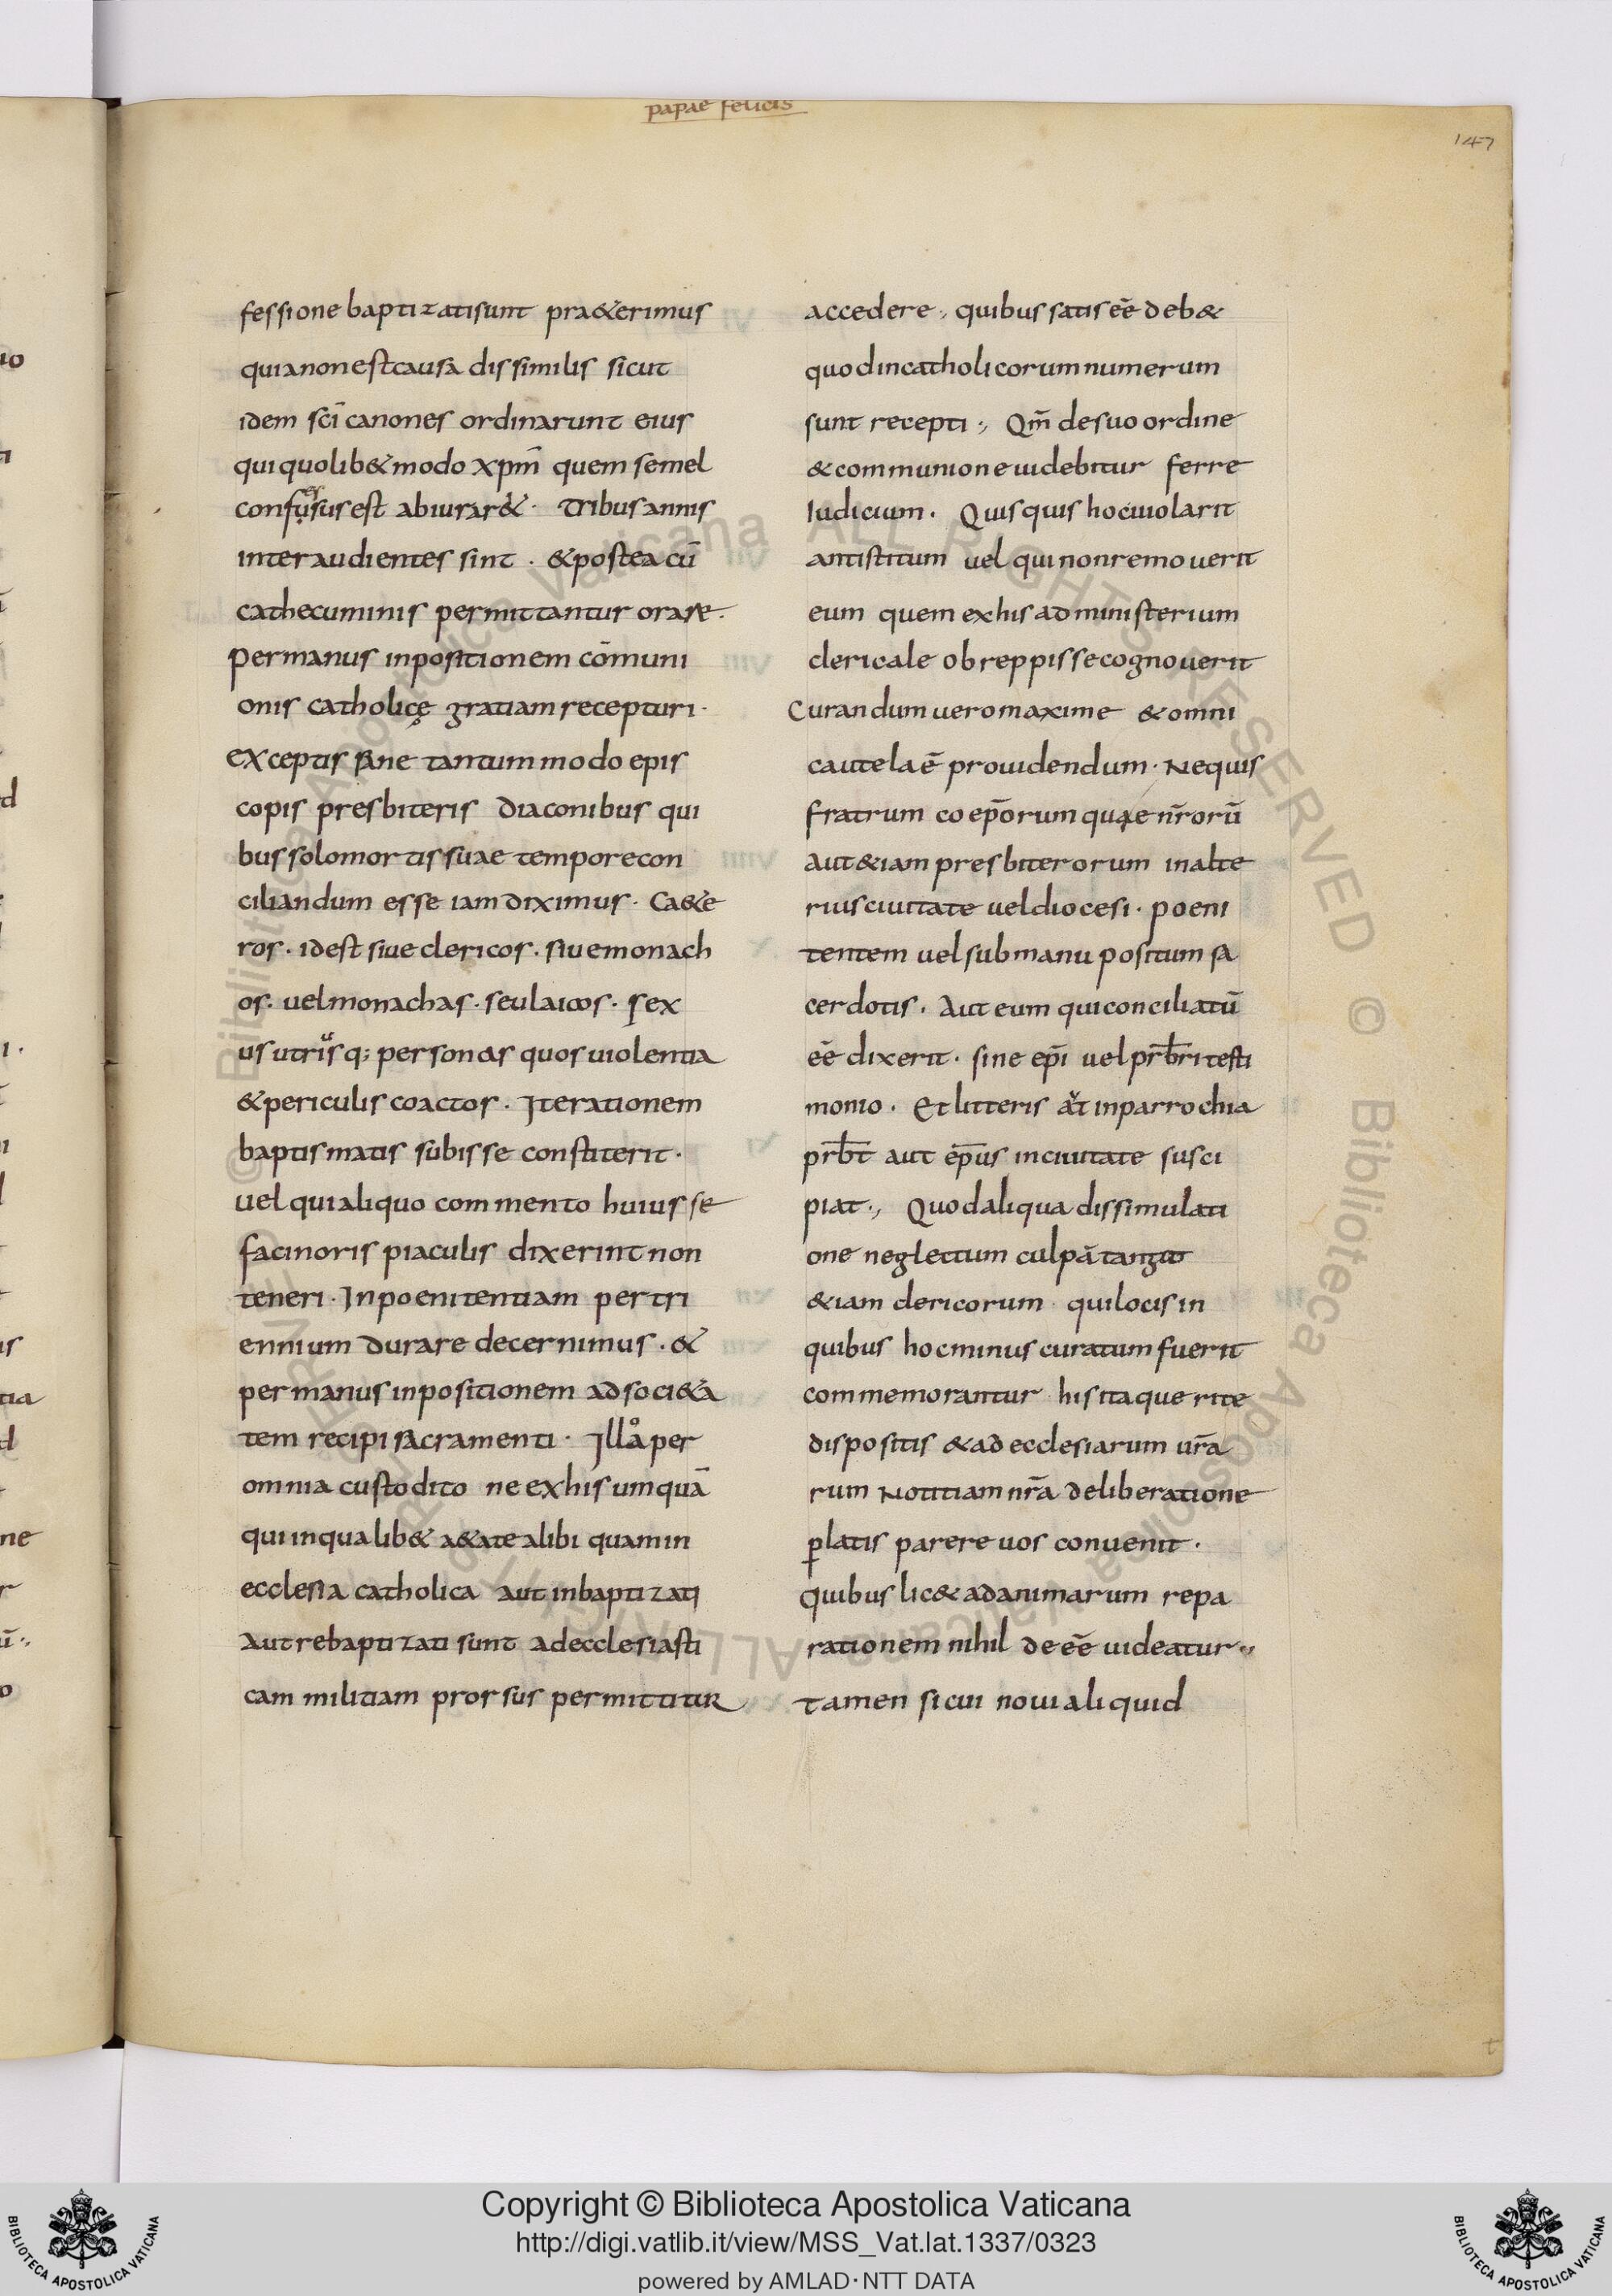 papae felicis
147
fessione baptizati sunt pra&erimus
quia non est causa dissimilis sicut
idem scī canones ordinarunt eius
qui quolib& modo xpm̄ quem semel
confususest abiurar&· Tribus annis
inter audientes sint · & postea cū
cathecuminis permittantur orare·
per manus inpositionem cōmuni
onis catholicę gratiam recepturi·
exceptis sane tantummodo epis
copis presbiteris diaconibus qui
bus solo mortis suae tempore con
ciliandum esse iam diximus· Ca&e
ros· id est siue clericos· siue monach
os· uel monachas· seu laicos· sex
us utriusq; personas quos uiolentia
& periculis coactos· Iterationem
baptismatis subisse constiterit·
uel qui aliquo commento huius se
facinoris piaculis dixerint non
teneri· In poenitentiam per tri
ennium durare decernimus· &
per manus inpositionem ad soci&a
tem recipi sacramenti· Illå per
omnia custodito ne ex his umquā
qui in qualib& a&ate alibi quam in
ecclesia catholica aut inbaptizati
aut rebaptizati sunt ad ecclesiasti
cam militiam prorsus permittitur
accedere., quibus satis eē deb&
quod in catholicorum numerum
sunt recepti., Qm̄ de suo ordine
& communione uidebitur ferre
Iudicium· Quisquis hoc uiolarit
antistitum uel qui non remouerit
eum quem ex his ad ministerium
clericale obreppisse cognouerit
Curandum uero maxime & omni
cautela ē prouidendum· Nequis
fratrum coep̄orum quae nr̄orū
aut &iam presbiterorum in alte
rius ciuitate uel diocesi· poeni
tentem uel sub manu positum sa
cerdotis· Aut eum qui conciliatū
eē dixerit· sine ep̄i uel prb̄ri testi
monio· Et litteris at in parrochia
prb̄t aut ep̄us in ciuitate susci
piat., Quod aliqua dissimulati
one neglectum culpā tangit
&iam clericorum qui locis in
quibus hoc minus curatum fuerit
commemorantur his itaque rite
dispositis & ad ecclesiarum ur̄a
rum notitiam nr̄a deliberatione
p̱latis parere uos conuenit·
quibus lic& ad animarum repa
rationem nihil deeē uideatur·,
tamen si cui noui aliquid
Copyright © Biblioteca Apostolica Vaticana
http://digi.vatlib.it/view/MSS_Vat.lat.1337/0323
powered by AMLAD·NTT DATA
BIBLIOTECA APOSTOLICA VATICANA
BIBLIOTECA APOSTOLICA VATICANA